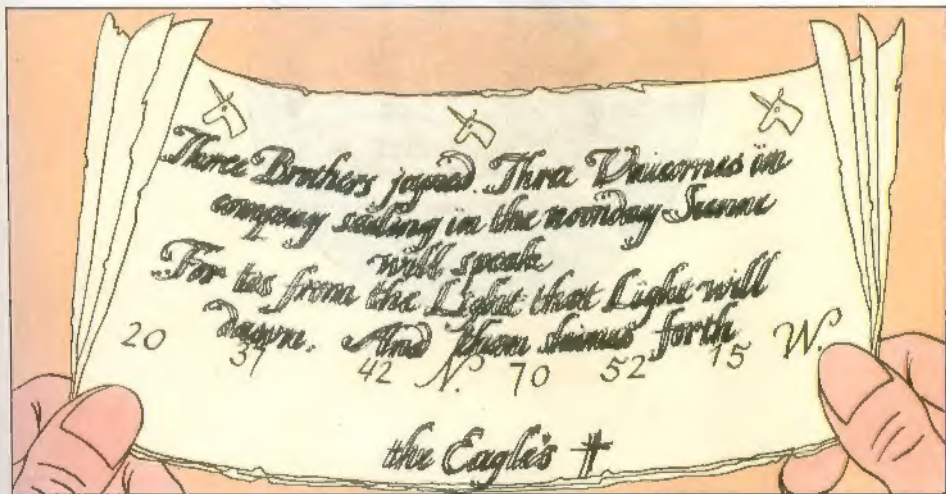 Three Brothers joyned. Three Unicornes in
company sailing in the noonday Sunne
will speak
For tis from the Light that Light will
dawn. And then shines forth
20 37 42 N. 70 52 15 W.
the Eagle's ✝